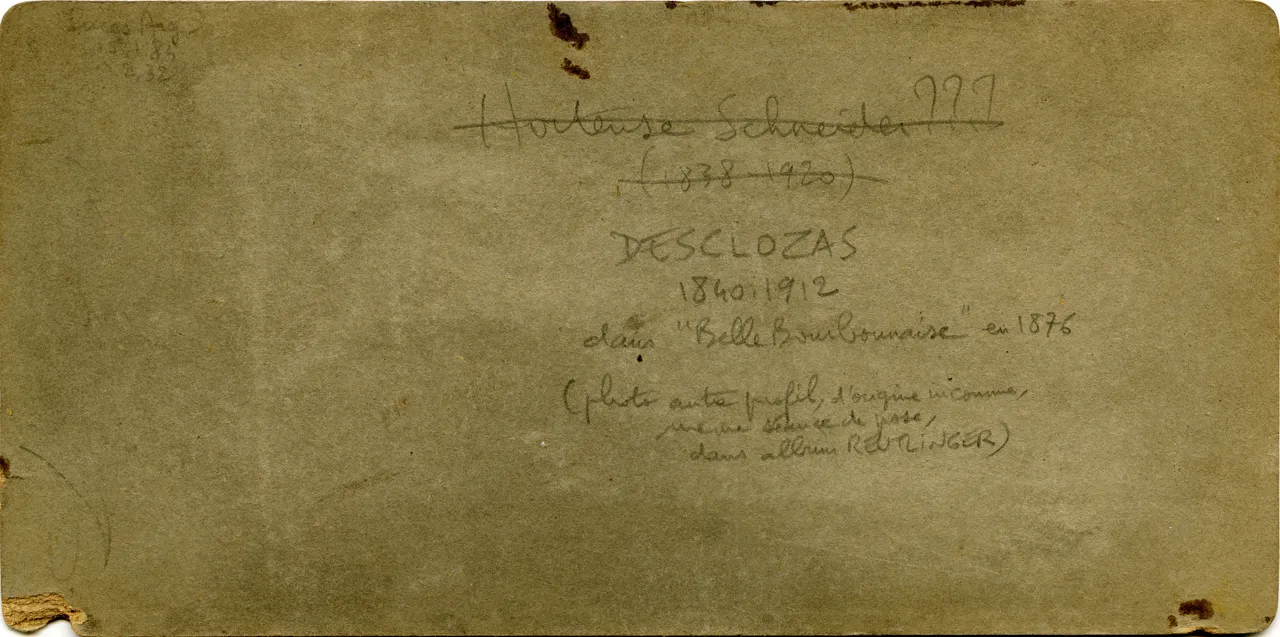 Hortense Schneider ???
(1838-1920)
DESCLOZAS
1840-1912
dans "Belle Bourbonnaise" en 1876
(photo autre profil, d'origine inconnue,
même séance de pose,
dans album REUTLINGER)